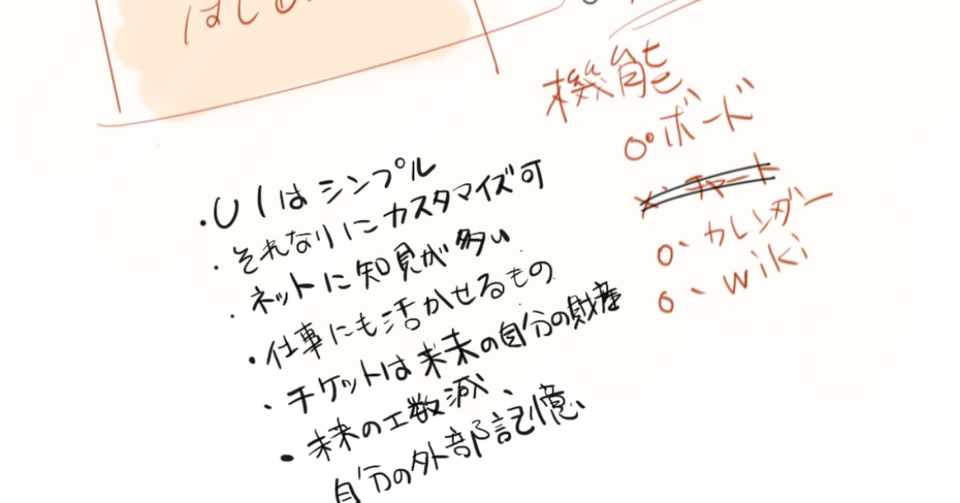 機能
○・ボード
×・チャート
○・カレンダー
○・wiki
・UIはシンプル
・それなりにカスタマイズ可
・ネットに知見が多い
・仕事にも活かせるもの
・チケットは未来の自分の財産
・未来の工数減、
自分の外部記憶、